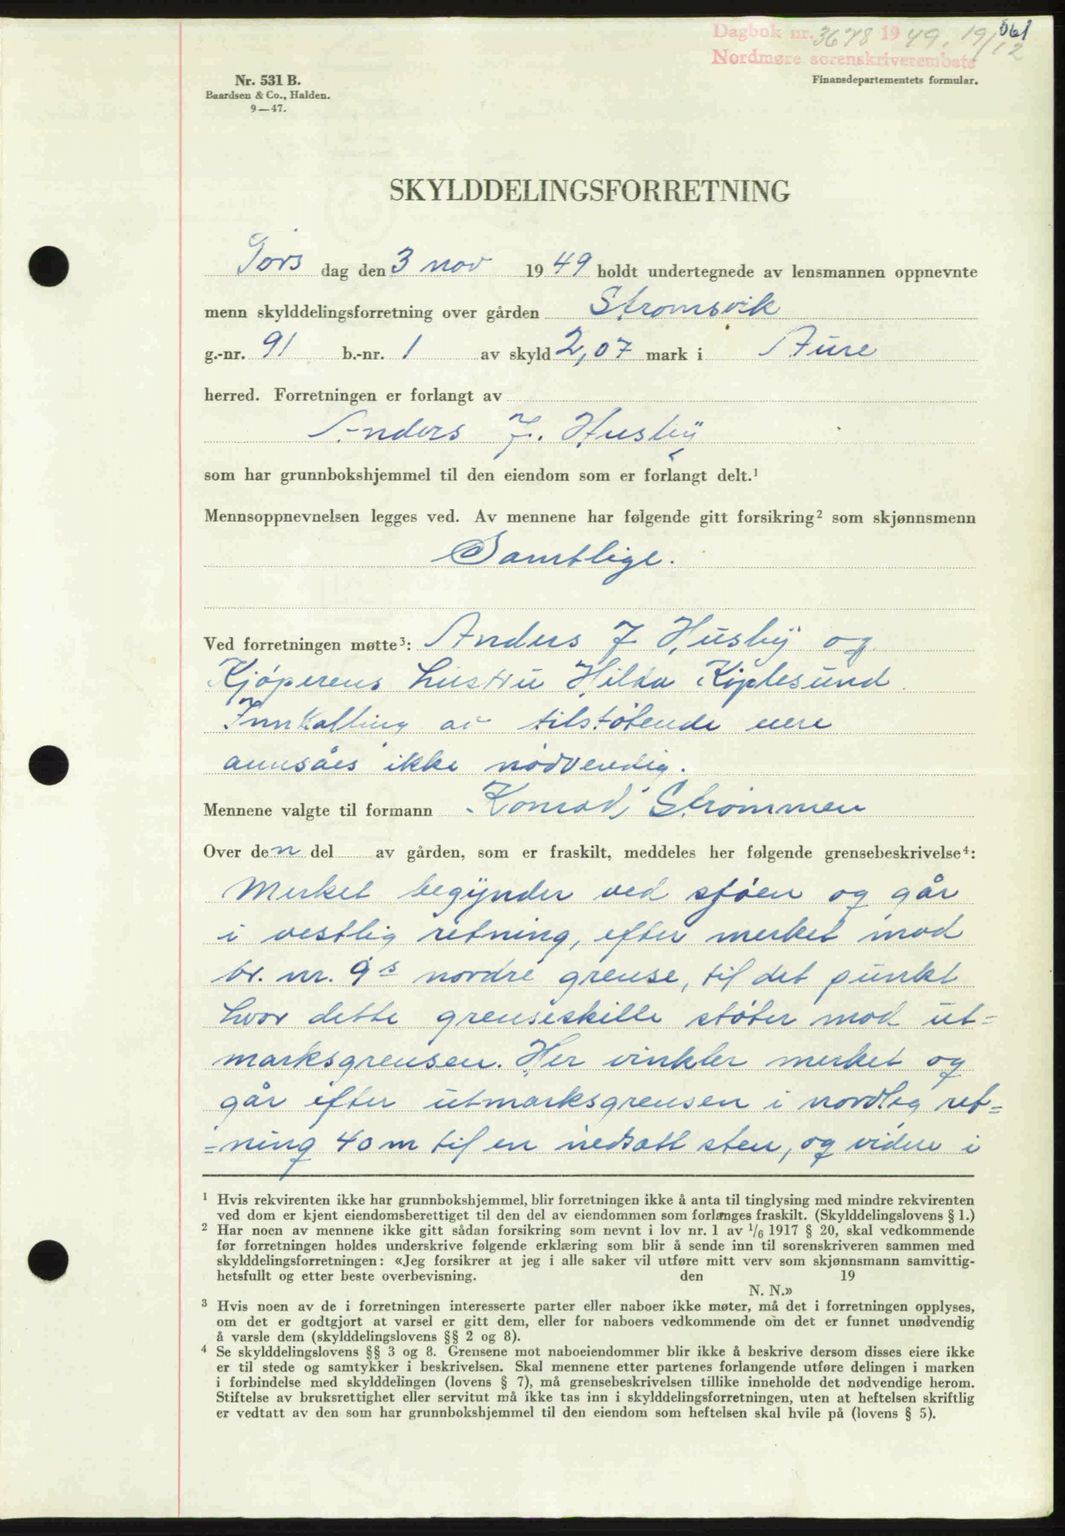 Dagbok nr. 3678 1949, 19/12
061
Nordmøre sorenskriverembete
Nr. 531 B.
Baardsen & Co., Halden.
9—47.
Finansdepartementets formular.
SKYLDDELINGSFORRETNING
Tors dag den 3 nov 1949 holdt undertegnede av lensmannen oppnevnte
menn skylddelingsforretning over gården Strømsvik
g.-nr. 91 b.-nr. 1 av skyld 2,07 mark i Aure
herred. Forretningen er forlangt av
Anders J. Husby
som har grunnbokshjemmel til den eiendom som er forlangt delt.¹
Mennsoppnevnelsen legges ved. Av mennene har følgende gitt forsikring² som skjønnsmenn
Samtlige.
Ved forretningen møtte³: Anders J Husby og
Kjøperens hustru Hilda Kjøplesund.
Innkalling av tilstøtende eiere
annsåes ikke nødvendig.
Mennene valgte til formann Konrad Strømmen
Over den del av gården, som er fraskilt, meddeles her følgende grensebeskrivelse⁴:
Merket begynder ved sjøen og går
i vestlig retning, efter merket mod
br. nr. 9s nordre grense, til det punkt
hvor dette grenseskille støter mod ut=
marksgrensen. Her vinkler merket og
går efter utmarksgrensen i nordleg ret=
=ning 40 m til en nedsatt sten, og videre i
¹ Hvis rekvirenten ikke har grunnbokshjemmel, blir forretningen ikke å anta til tinglysing med mindre rekvirenten
ved dom er kjent eiendomsberettiget til den del av eiendommen som forlanges fraskilt. (Skylddelingslovens § 1.)
² Har noen av mennene ikke gitt sådan forsikring som nevnt i lov nr. 1 av 1/6 1917 § 20, skal vedkommende
før forretningen holdes underskrive følgende erklæring som blir å sende inn til sorenskriveren sammen med
skylddelingsforretningen: «Jeg forsikrer at jeg i alle saker vil utføre mitt verv som skjønnsmann samvittig-
hetsfullt og etter beste overbevisning. den 19
N. N.»
³ Hvis noen av de i forretningen interesserte parter eller naboer ikke møter, må det i forretningen opplyses,
om det er godtgjort at varsel er gitt dem, eller for naboers vedkommende om det er funnet unødvendig
å varsle dem (skylddelingslovens §§ 2 og 8).
⁴ Se skylddelingslovens §§ 3 og 8. Grensene mot naboeiendommer blir ikke å beskrive dersom disses eiere ikke
er til stede og samtykker i beskrivelsen. Skal mennene etter partenes forlangende utføre delingen i marken
i forbindelse med skylddelingen (lovens § 7), må grensebeskrivelsen tillike inneholde det nødvendige herom.
Stiftelse av bruksrettighet eller servitut må ikke tas inn i skylddelingsforretningen, uten at heftelsen skriftlig
er vedtatt av den som har grunnbokshjemmel til den eiendom som heftelsen skal hvile på (lovens § 5).